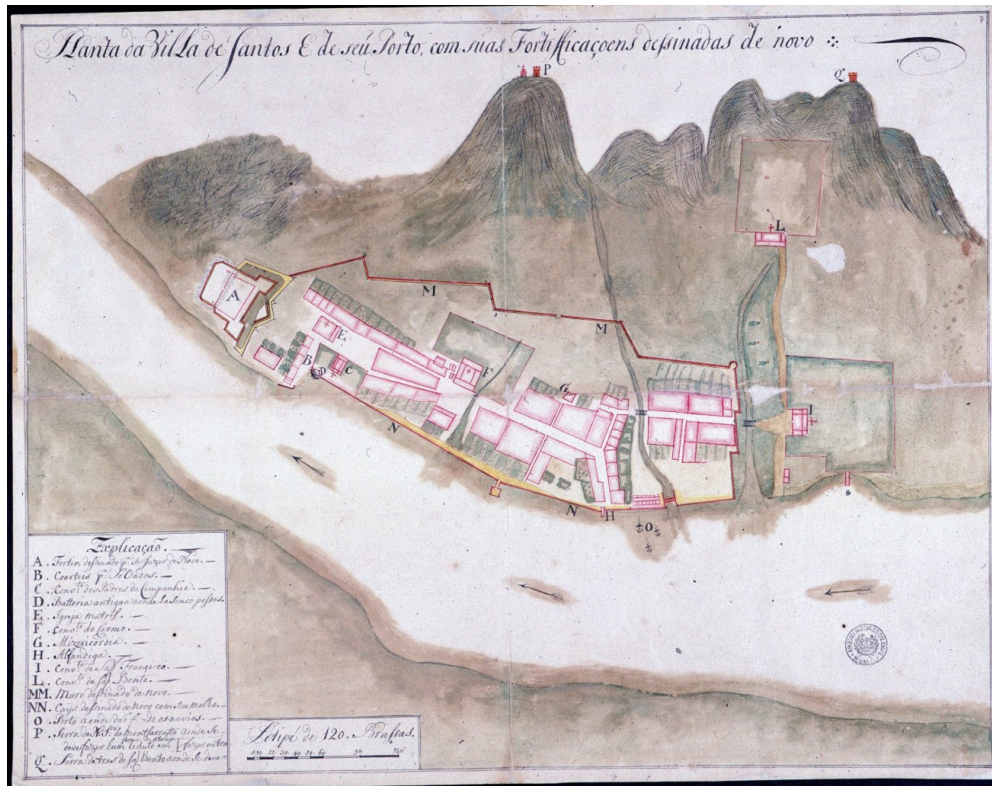 Planta da Villa de Santos E de seu Porto, com suas Fortifficaçoens dessinadas de novo
P
Q
L
A
M
M
E
B
D
C
F
G
I
N
N
H
O
Explicação.
A. Fortim dessinado p.ª se fazer de Novo.
B. Coarteis p.ª Soldados.
C. Conv.to dos Padres da Companhia.
D. Batteria antigua aonde
E. Igreja matris.
F. Conv.to do Carmo.
G. Mizericordia.
H. Alfandiga.
I. Conv.to de S. Francisco.
L. Conv.to de S. Bento.
MM. Muro dessinado de novo.
NN. Cays dessinado de novo com seu molhe.
O. Porto aonde dão fundo os navios.
P. Serra de N. S.ª de Montsarratto aonde se
deve fazer hum reduto em
fazer outro
Q. Serra de tras de S. Bento aonde se deve
Petipé de 120. Brassas.
10. 20. 30. 40. 50. 60. 90. 120